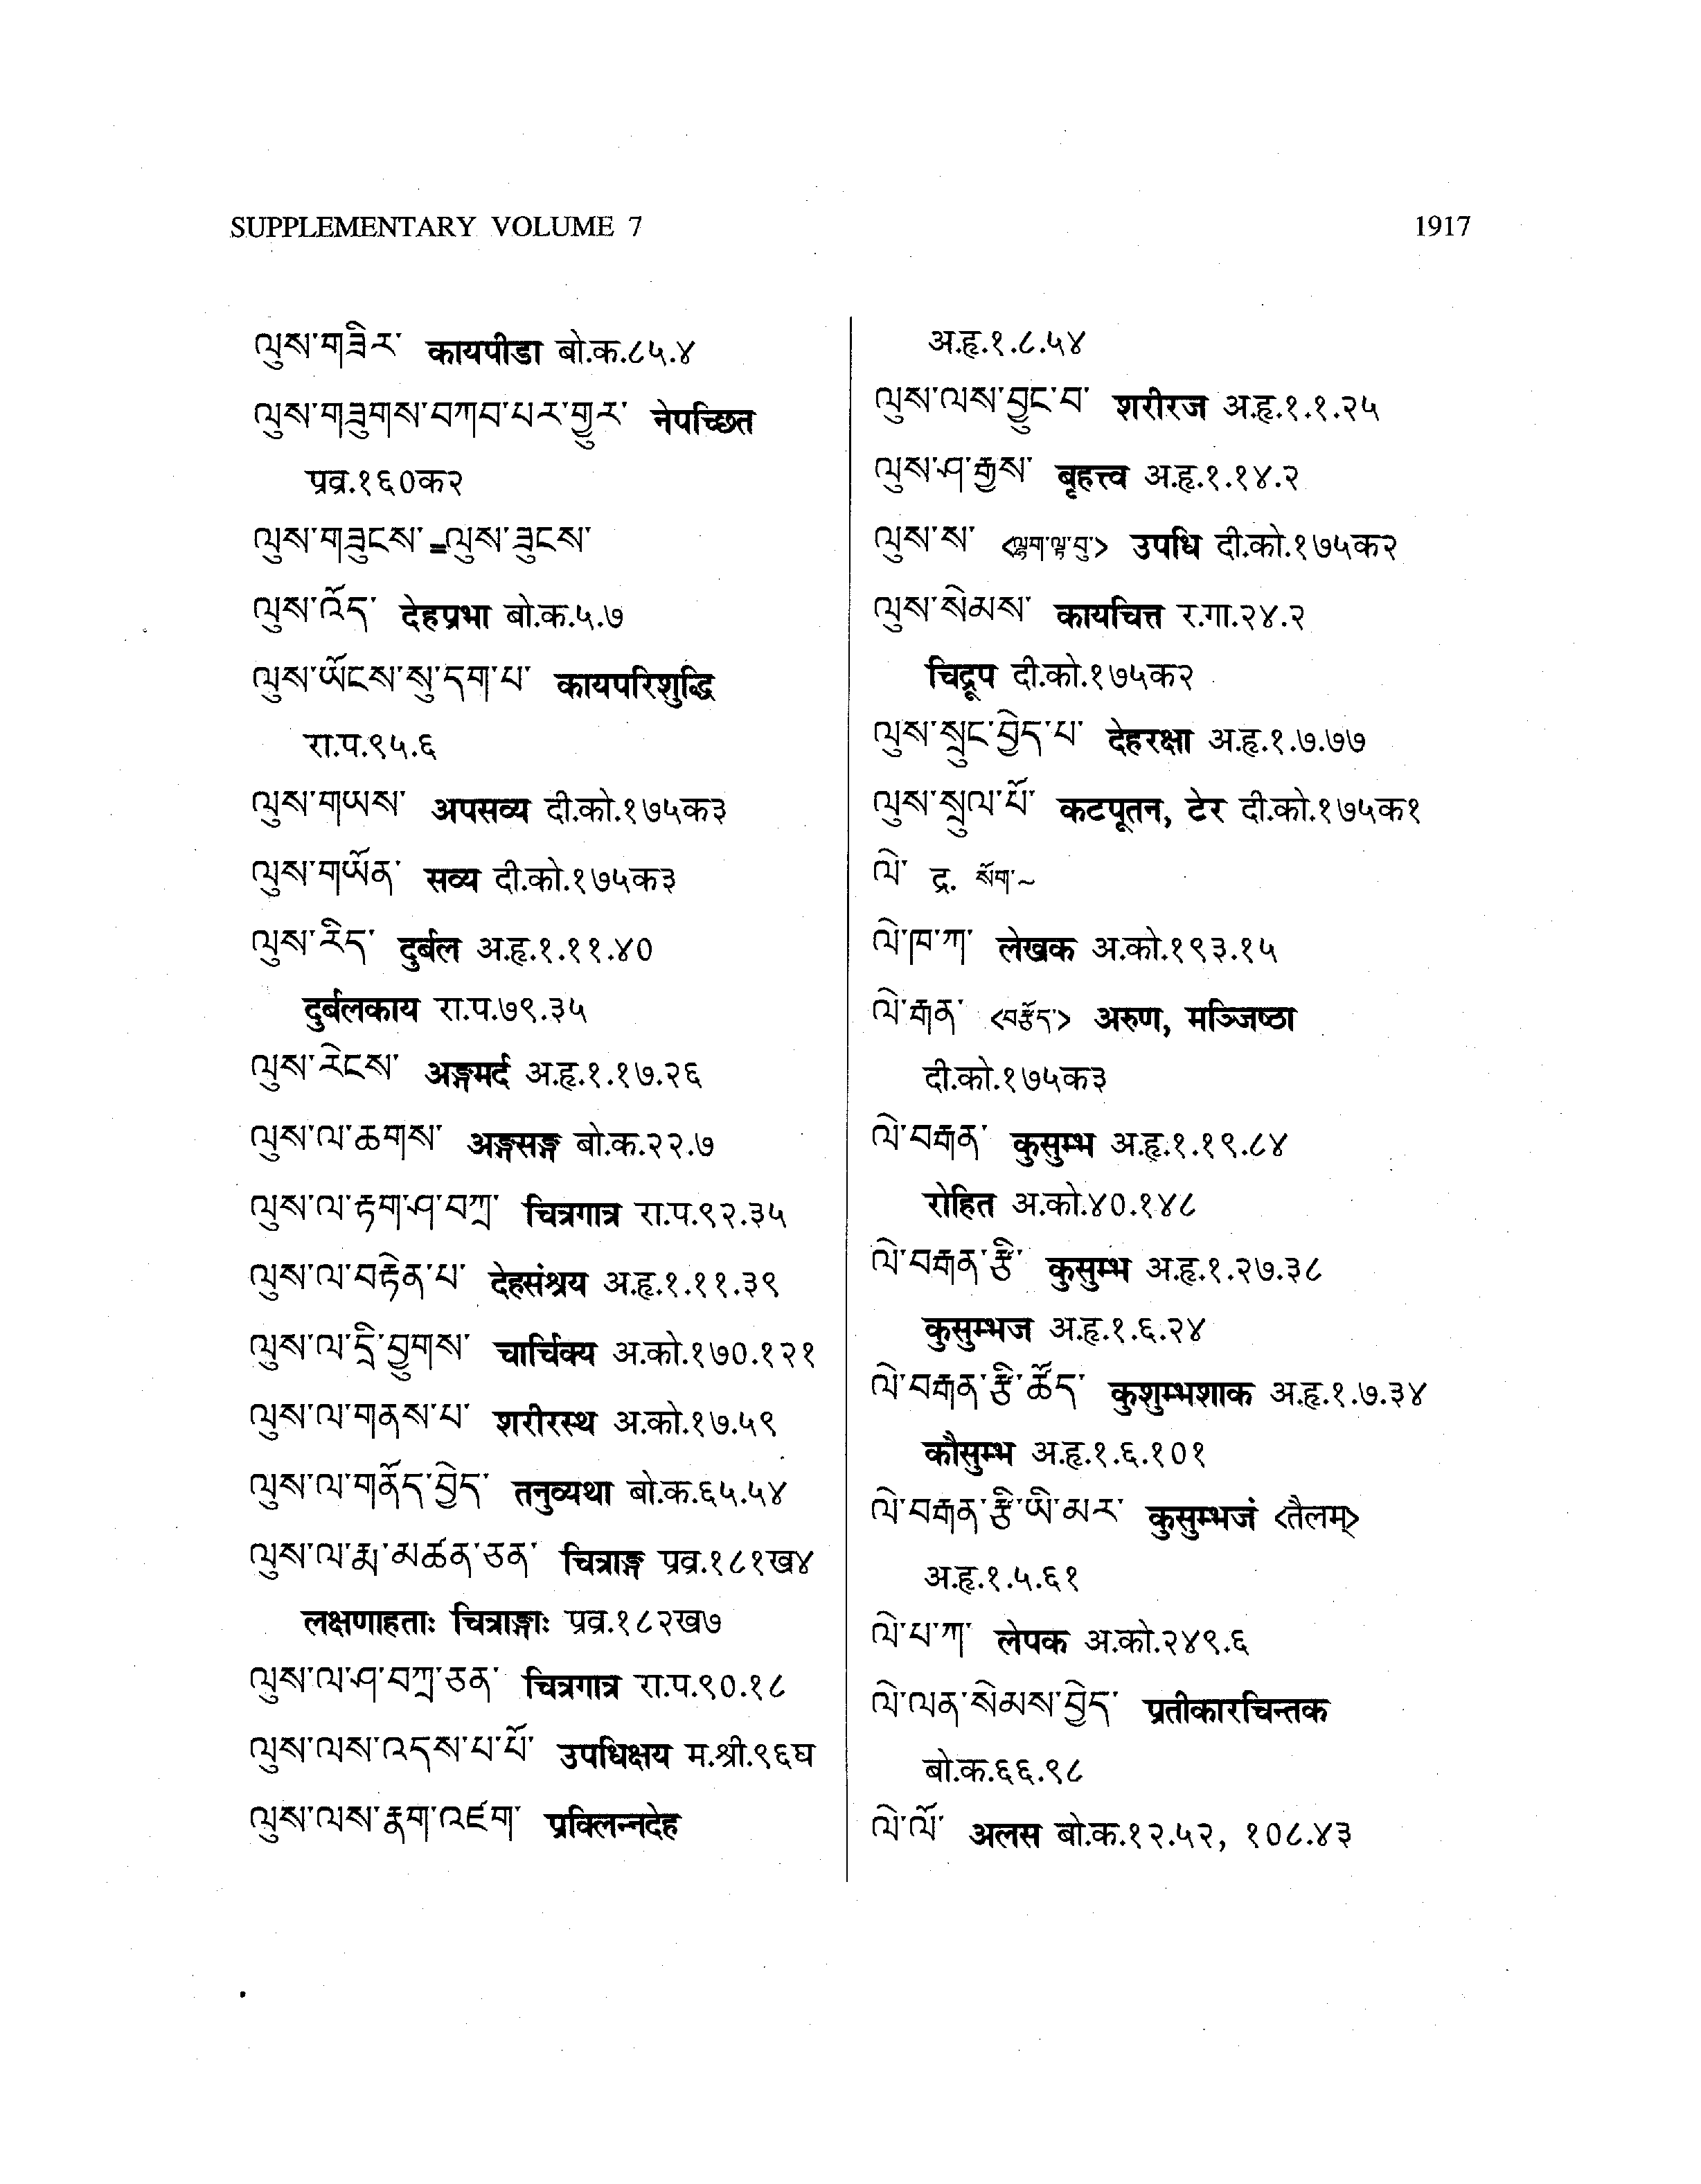 SUPPLEMENTARY VOLUME 7 1917
ལུས་གཟིར་ कायपीडा बो.क.८५.४
ལུས་གཟུགས་བཀབ་པར་གྱུར་ नेपच्छित
प्रव्र.१६०क२
ལུས་གཟུངས་=ལུས་ཟུངས་
ལུས་འོད་ देहप्रभा बो.क.५.७
ལུས་ཡོངས་སུ་དག་པ་ कायपरिशुद्धि
रा.प.९५.६
ལུས་གཡས་ अपसव्य दी.को.१७५क३
ལུས་གཡོན་ सव्य दी.को.१७५क३
ལུས་རིད་ दुर्बल अ.हृ.१.११.४०
दुर्बलकाय रा.प.७९.३५
ལུས་རེངས་ अङ्गमर्द अ.हृ.१.१७.२६
ལུས་ལ་ཆགས་ अङ्गसङ्ग बो.क.२२.७
ལུས་ལ་རྟག་ཤ་བཀྲ་ चित्रगात्र रा.प.९२.३५
ལུས་ལ་བརྟེན་པ་ देहसंश्रय अ.हृ.१.११.३९
ལུས་ལ་དྲི་བྱུགས་ चार्चिक्य अ.को.१७०.१२१
ལུས་ལ་གནས་པ་ शरीरस्थ अ.को.१७.५९
ལུས་ལ་གནོད་བྱེད་ तनुव्यथा बो.क.६५.५४
ལུས་ལ་རྨ་མཚན་ཅན་ चित्राङ्ग प्रव्र.१८१ख४
लक्षणाहताः चित्राङ्गाः प्रव्र.१८२ख७
ལུས་ལ་ཤ་བཀྲ་ཅན་ चित्रगात्र रा.प.९०.१८
ལུས་ལས་འདས་པ་པོ་ उपधिक्षय म.श्री.९६घ
ལུས་ལས་རྣག་འཛག་ प्रक्लिन्नदेह
अ.हृ.१.८.५४
ལུས་ལས་བྱུང་བ་ शरीरज अ.हृ.१.१.२५
ལུས་ཤ་རྒྱས་ बृहत्त्व अ.हृ.१.१४.२
ལུས་ས་ <ལྷག་ལྟ་བུ་> उपधि दी.को.१७५क२
ལུས་སེམས་ कायचित्त र.गा.२४.२
चिद्रूप दी.को.१७५क२
ལུས་སྲུང་བྱེད་པ་ देहरक्षा अ.हृ.१.७.७७
ལུས་སྲུལ་པོ་ कटपूतन, टेर दी.को.१७५क१
ལེ་ द्र. སོག་~
ལེ་ཁ་ཀ་ लेखक अ.को.१९३.१५
ལེ་རྒན་ <བརྩོད་> अरुण, मञ्जिष्ठा
दी.को.१७५क३
ལེ་བརྒན་ कुसुम्भ अ.हृ.१.१९.८४
रोहित अ.को.४०.१४८
ལེ་བརྒན་རྩི་ कुसुम्भ अ.हृ.१.२७.३८
कुसुम्भज अ.हृ.१.६.२४
ལེ་བརྒན་རྩི་ཚོད་ कुशुम्भशाक अ.हृ.१.७.३४
कौसुम्भ अ.हृ.१.६.१०१
ལེ་བརྒན་རྩི་ཡི་མར་ कुसुम्भजं <तैलम्>
अ.हृ.१.५.६१
ལེ་པ་ཀ་ लेपक अ.को.२४९.६
ལེ་ལན་སེམས་བྱེད་ प्रतीकारचिन्तक
बो.क.६६.९८
ལེ་ལོ་ अलस बो.क.१२.५२, १०८.४३